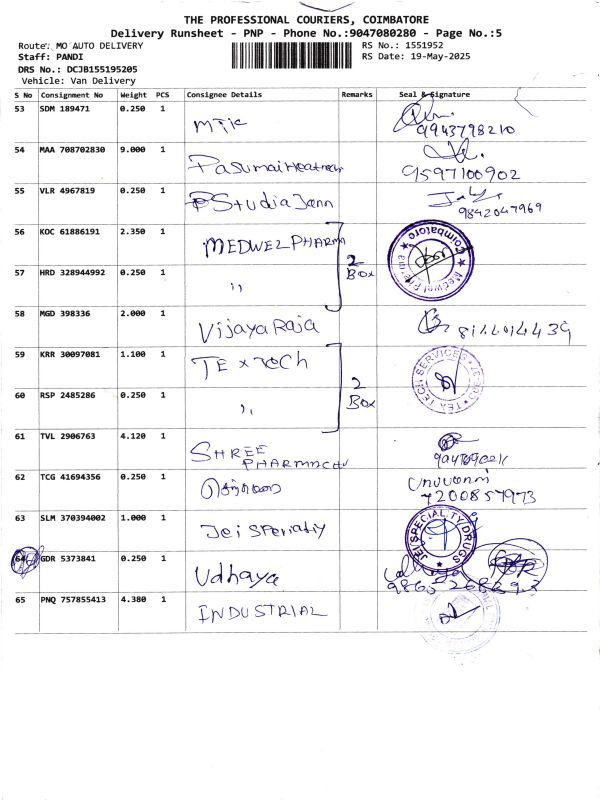 THE PROFESSIONAL COURIERS, COIMBATORE
Delivery Runsheet - PNP - Phone No.:9047080280 - Page No.:5
Route: MO AUTO DELIVERY RS No.: 1551952
Staff: PANDI RS Date: 19-May-2025
DRS No.: DCJB155195205
Vehicle: Van Delivery
S No Consignment No Weight PCS Consignee Details Remarks Seal & Signature
53 SDM 189471 0.250 1 MTIC 9943798210
54 MAA 708702830 9.000 1 9597100902
55 VLR 4967819 0.250 1 Studio Jann 9842047969
56 KOC 61886191 2.350 1 MEDWEL PHARMA 2 Box Medwel Coimbatore
57 HRD 328944992 0.250 1 ,,
58 MGD 398336 2.000 1 Vijaya Raja
59 KRR 30097081 1.100 1 TEXTECH 2 Box TEX TECH SERVICES
60 RSP 2485286 0.250 1 ,,
61 TVL 2906763 4.120 1 SHREE
62 TCG 41694356 0.250 1 7200857973
63 SLM 370394002 1.000 1 Jei Speciality JEI SPECIALITY DRUGS
64 GDR 5373841 0.250 1 Udhaya
65 PNQ 757855413 4.380 1 INDUSTRIAL